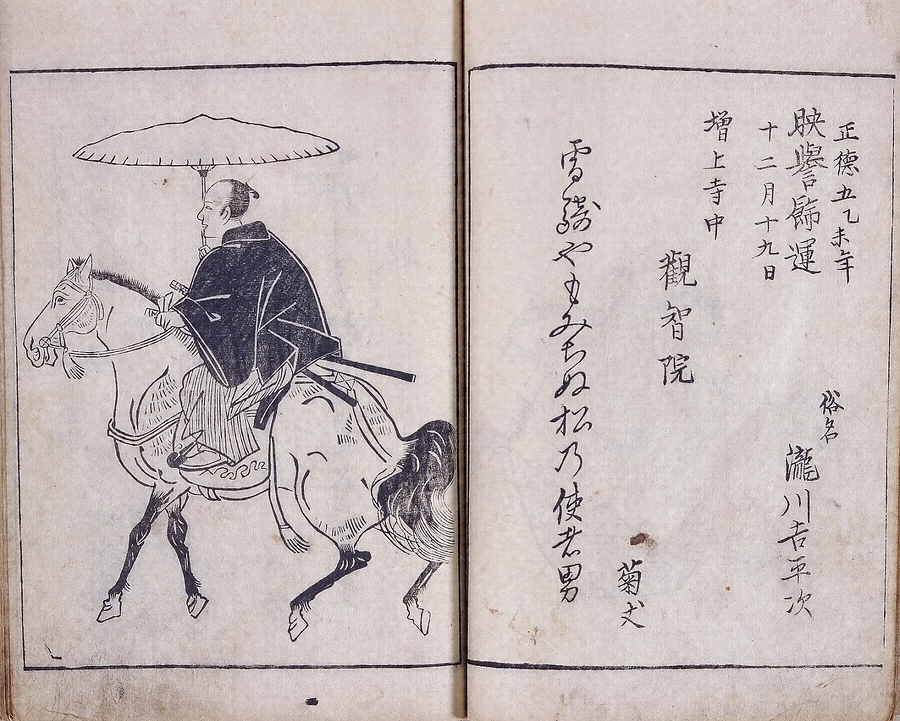 正徳五乙未年
映譽飾運
十二月十九日
俗名
瀧川吉平次
増上寺中
觀智院
雪
やもみちぬ松乃使者男
菊丈